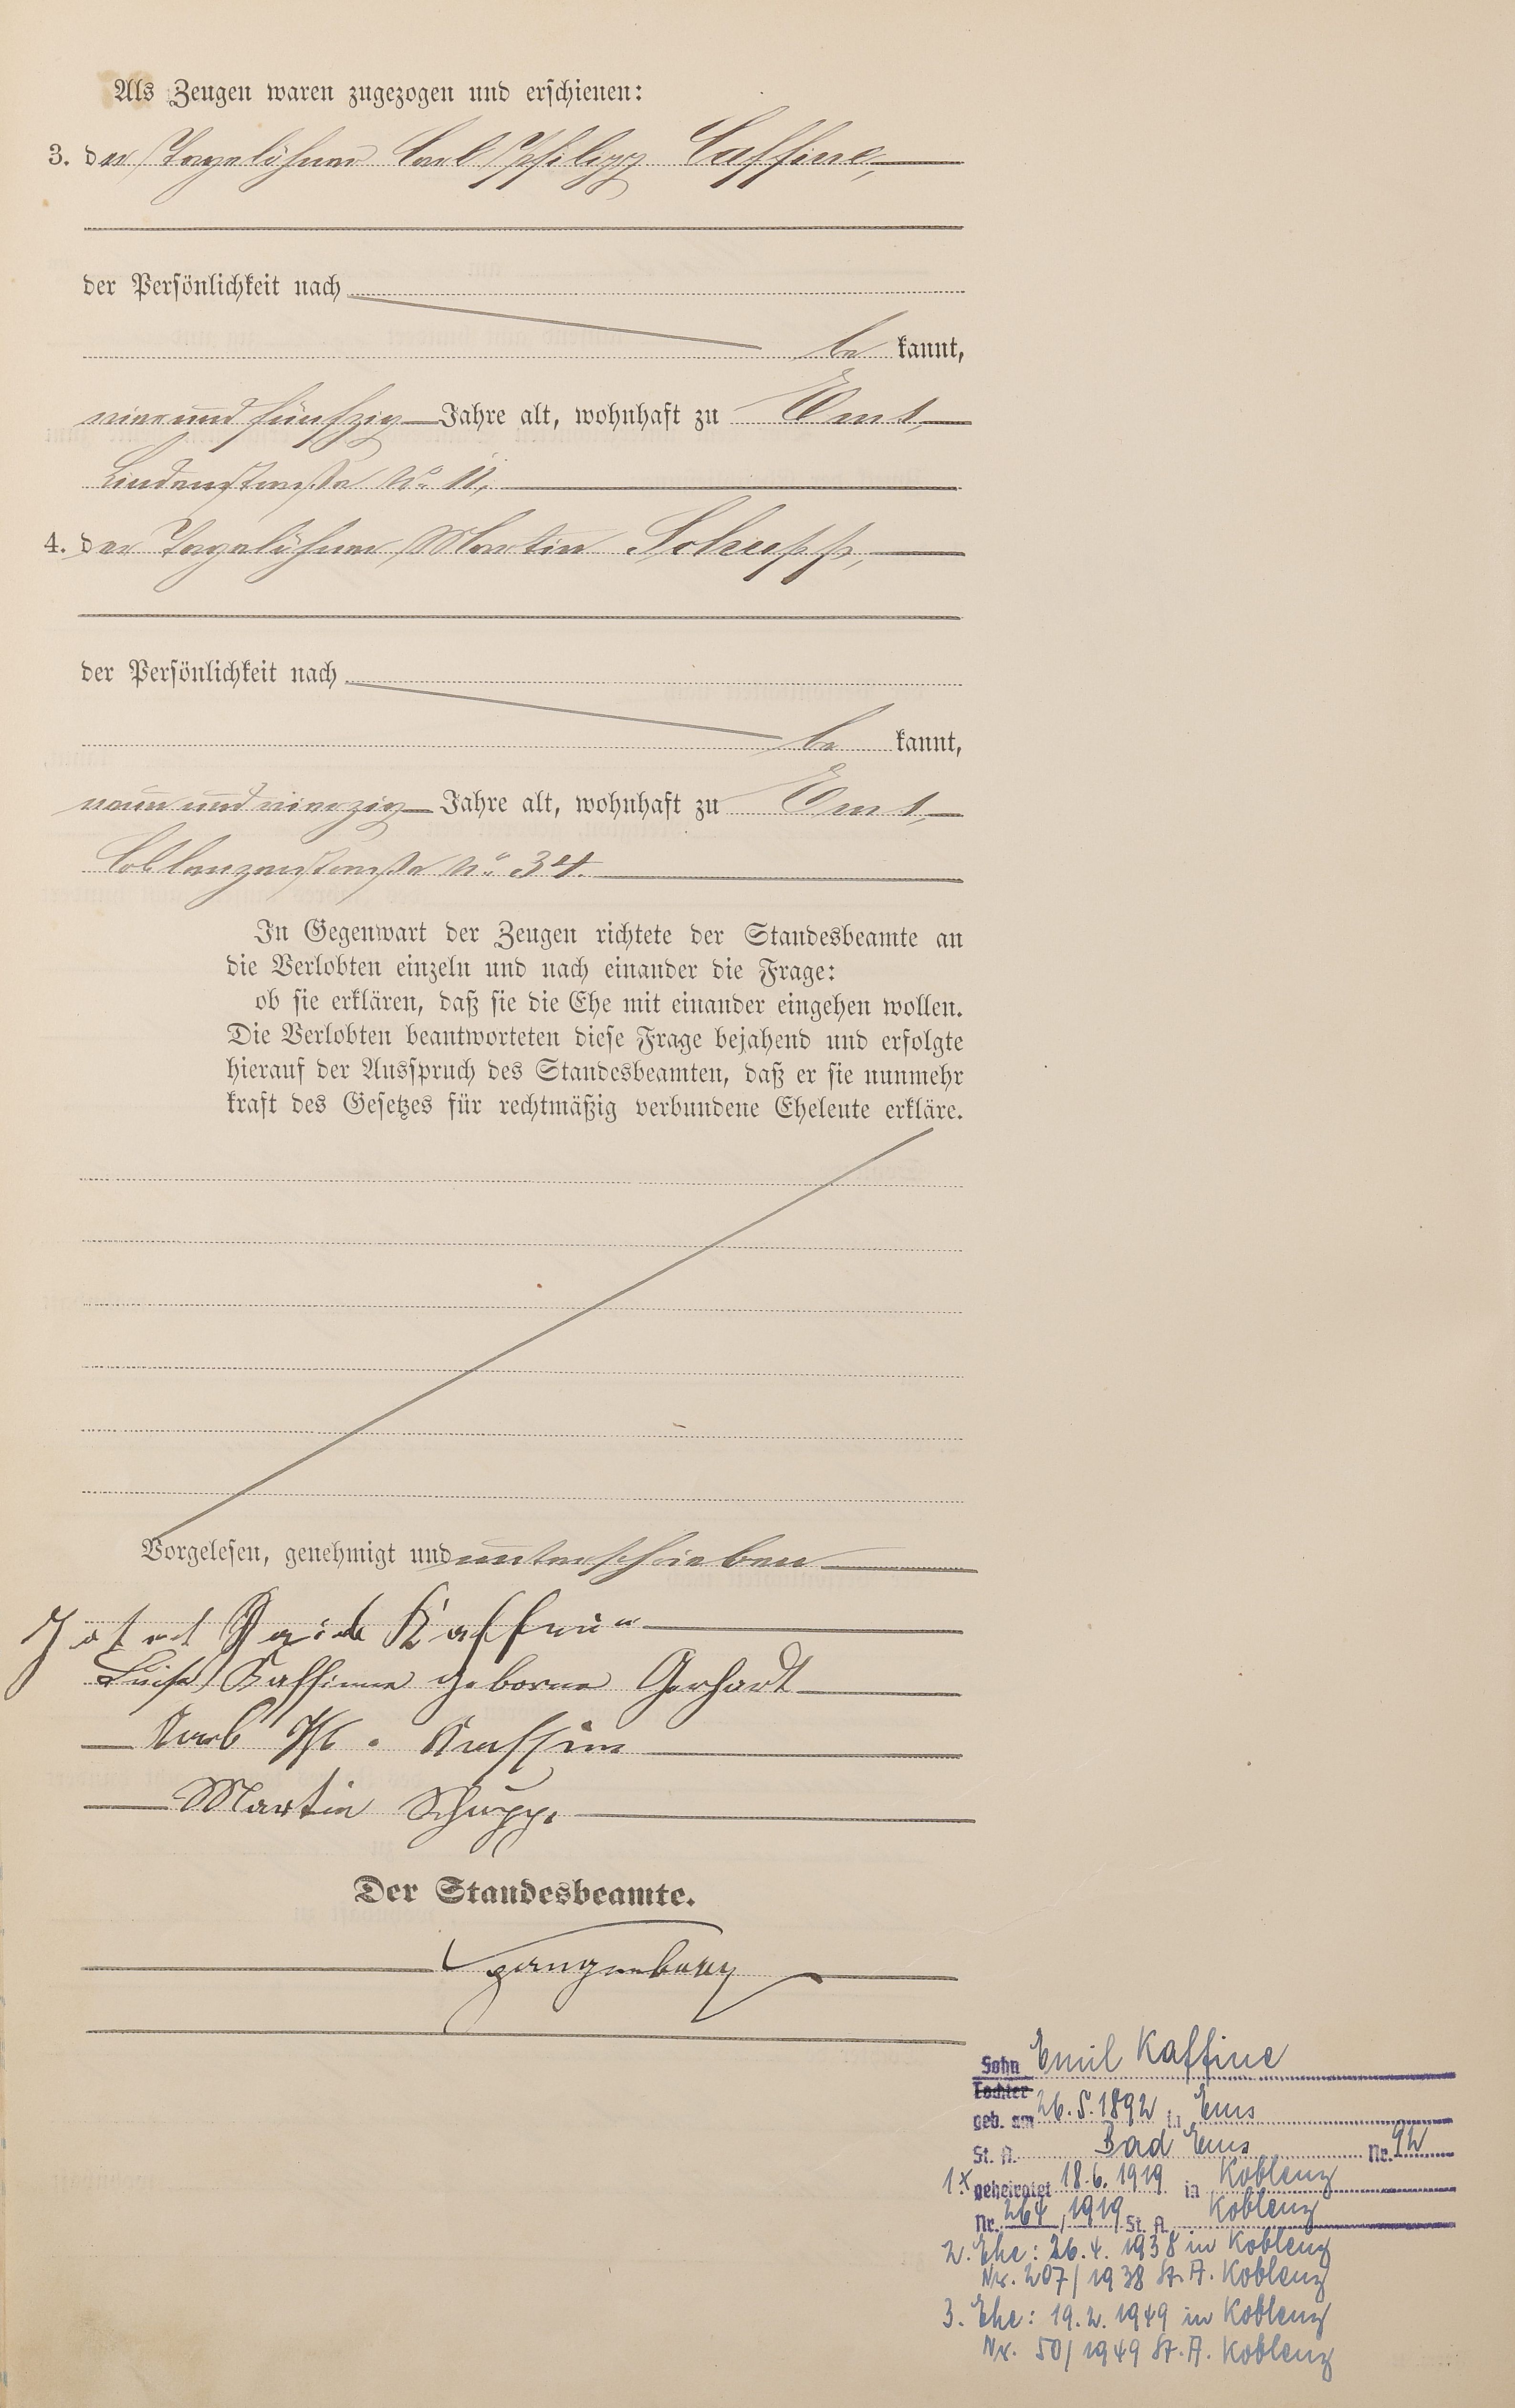 Als Zeugen waren zugezogen und erschienen:
3. der Tagelöhner Carl Philipp Caffine,
der Persönlichkeit nach
be kannt,
vier und fünfzig Jahre alt, wohnhaft zu Ems,
Lindenstraße No. 11,
4. der Tagelöhner Martin Schupp,
der Persönlichkeit nach
be kannt,
neun und vierzig Jahre alt, wohnhaft zu Ems,
Coblenzerstraße No. 34.
In Gegenwart der Zeugen richtete der Standesbeamte an
die Verlobten einzeln und nach einander die Frage:
ob sie erklären, daß sie die Ehe mit einander eingehen wollen.
Die Verlobten beantworteten diese Frage bejahend und erfolgte
hierauf der Ausspruch des Standesbeamten, daß er sie nunmehr
kraft des Gesetzes für rechtmäßig verbundene Eheleute erkläre.
Vorgelesen, genehmigt und unterschrieben
Luise Kaffine geborne Gerhardt
Karl Ph. Kaffine
Martin Schupp.
Der Standesbeamte.
Sohn Emil Kaffine
Tochter
geb. am 26.5.1892 in Ems
St. A. Bad Ems Nr. 92
1.x geheiratet 18.6.1919 in Koblenz
Nr. 264/1919 St. A. Koblenz
2. Ehe: 26.4.1938 in Koblenz
Nr. 207/1938 St. A. Koblenz
3. Ehe: 19.2.1949 in Koblenz
Nr. 50/1949 St. A. Koblenz